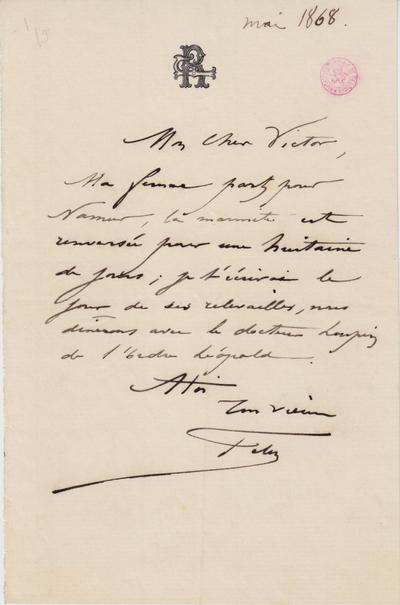 mai 1868.
Mon cher Victor,
Ma femme part pour
Namur, la marmite est
renversée pour une huitaine
de jours ; je t'écrirai le
jour de ses relevailles, nous
dînerons avec le docteur
de l'Ordre Léopold.
A toi
Ton vieux